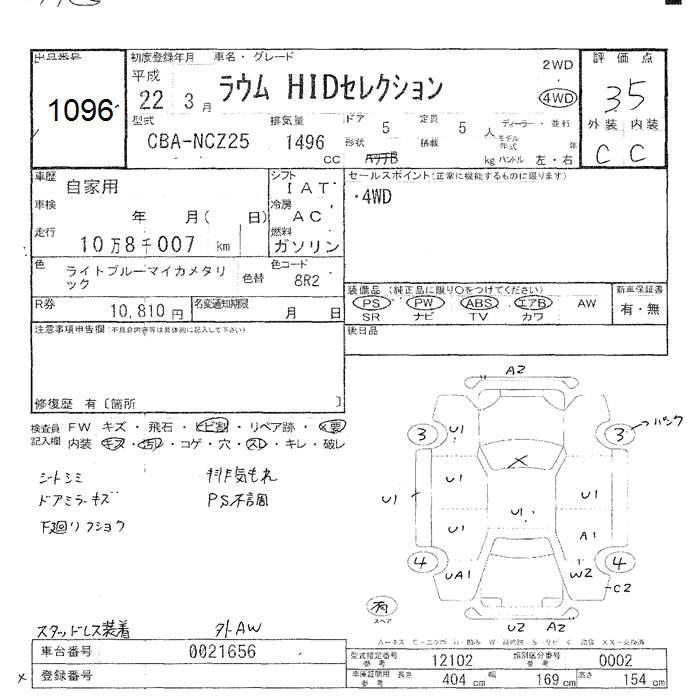 出品番号
1096
初度登録年月 車名・グレード
平成 22 3 月 ラウム HIDセレクション
2WD
4WD
評価点
35
型式 排気量 ドア 5 定員 5 人 ディーラー・並行
CBA-NCZ25 1496 cc 形状 積載 kg モデル年式 年 ハンドル 左・右
外装 内装
C C
車歴 自家用
シフト IAT
セールスポイント(正常に機能するものに限ります)
・4WD
車検 年 月( 日)
冷房 AC
走行 10万8千007 km
燃料 ガソリン
色 ライトブルーマイカメタリック 色替
色コード 8R2
装備品 (純正品に限り○をつけてください)
新車保証書
PS PW ABS エアB AW
有・無
SR ナビ TV カワ
R券 10,810 円 名変通知期限 月 日
後日品
注意事項申告欄(不具合内容等は具体的に記入して下さい)
修復歴 有〔箇所 〕
検査員記入欄
FW キズ・飛石・ヒビ割・リペア跡・X要
内装 キズ・汚レ・コゲ・穴・スレ・キレ・破レ
シートシミ 排気もれ
ドアミラーキズ PS不調
下廻りフショク
A2
U1
3
3
パンク
U1
U1
U1
U1
U1
A1
4
4
UA1
W2
C2
有
スペア
U2 A2
スタッドレス装着 外AW
車台番号 0021656
登録番号
型式指定番号 参考 12102 類別区分番号 参考 0002
車庫証明用 参考 長さ 404 cm 幅 169 cm 高さ 154 cm